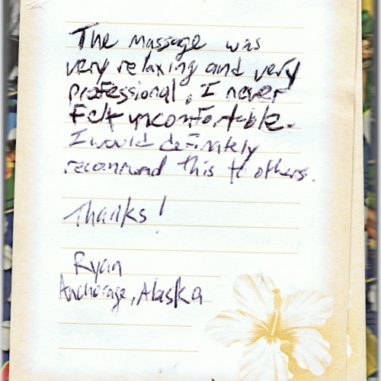 The massage was
very relaxing and very
professional, I never
felt uncomfortable.
I would definitely
recommend this to others.
Thanks!
Ryan
Anchorage, Alaska